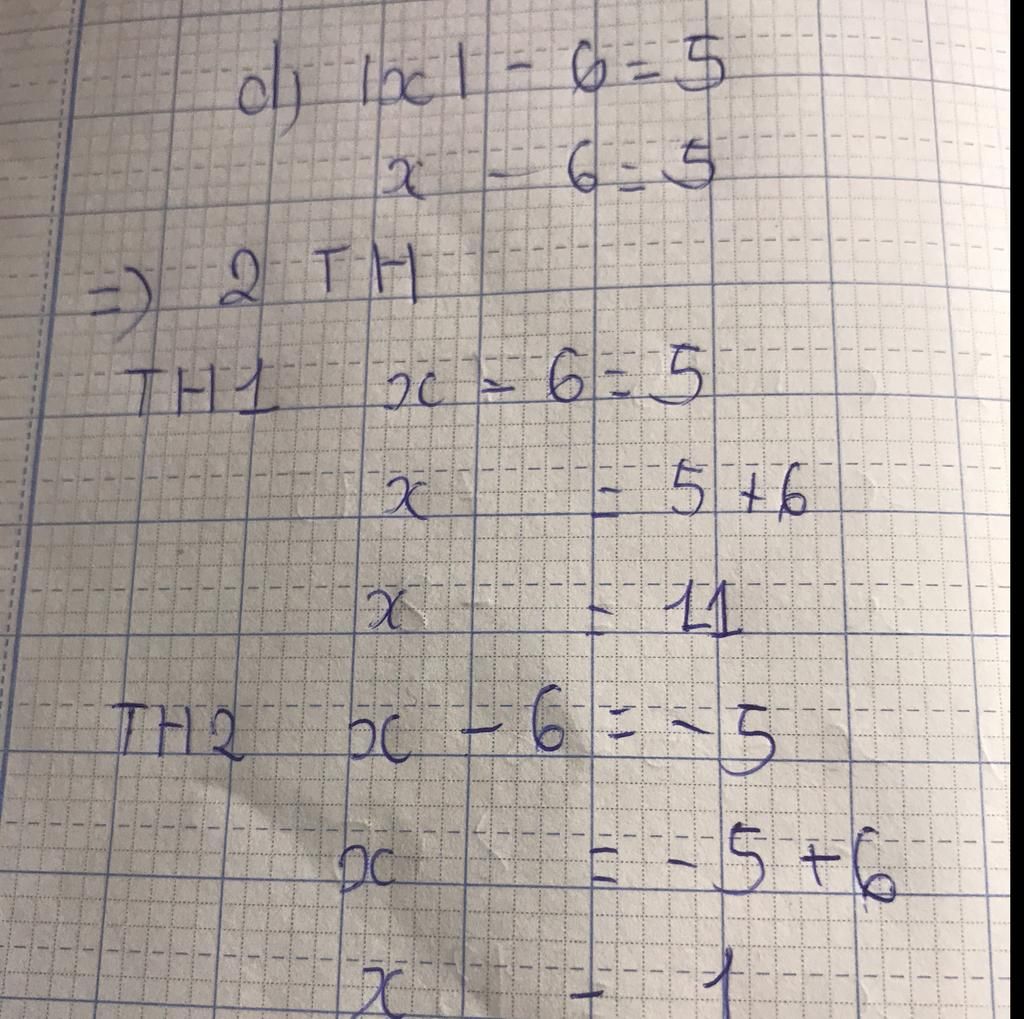 d) |x| - 6 = 5
x - 6 = 5
=) 2 TH
TH1 x - 6 = 5
x = 5 + 6
x = 11
TH2 x - 6 = - 5
x = - 5 + 6
x = 1